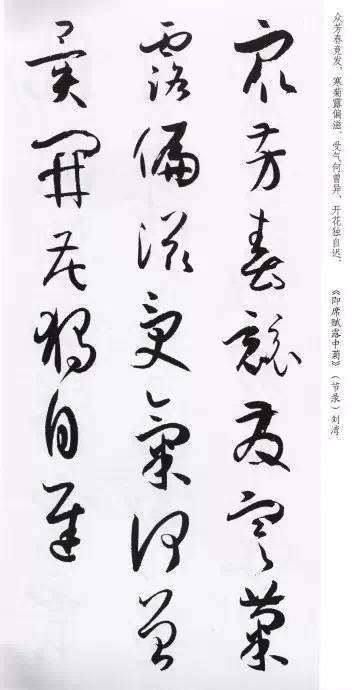 众芳春竟发，寒菊露偏滋。受气何曾异，开花独自迟。 《即席赋露中菊》（节录）刘湾
眾芳春競發寒菊
露偏滋受氣何曾
異開花獨自遲